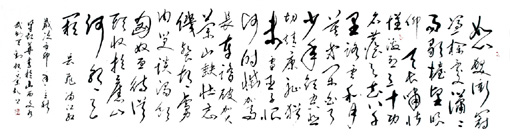 怒髮衝冠
憑欄處瀟瀟
雨歇抬望眼
仰天長嘯壯
懷激烈三十功
名塵與土八千
里路雲和月
莫等閒白了
少年頭空悲
切靖康恥猶
未雪臣子恨
何時滅駕
長車踏破賀
蘭山缺壯志
飢餐胡虜
肉笑談渴飲
匈奴血待從
頭收拾舊山
河朝天
闕 岳飛滿江紅